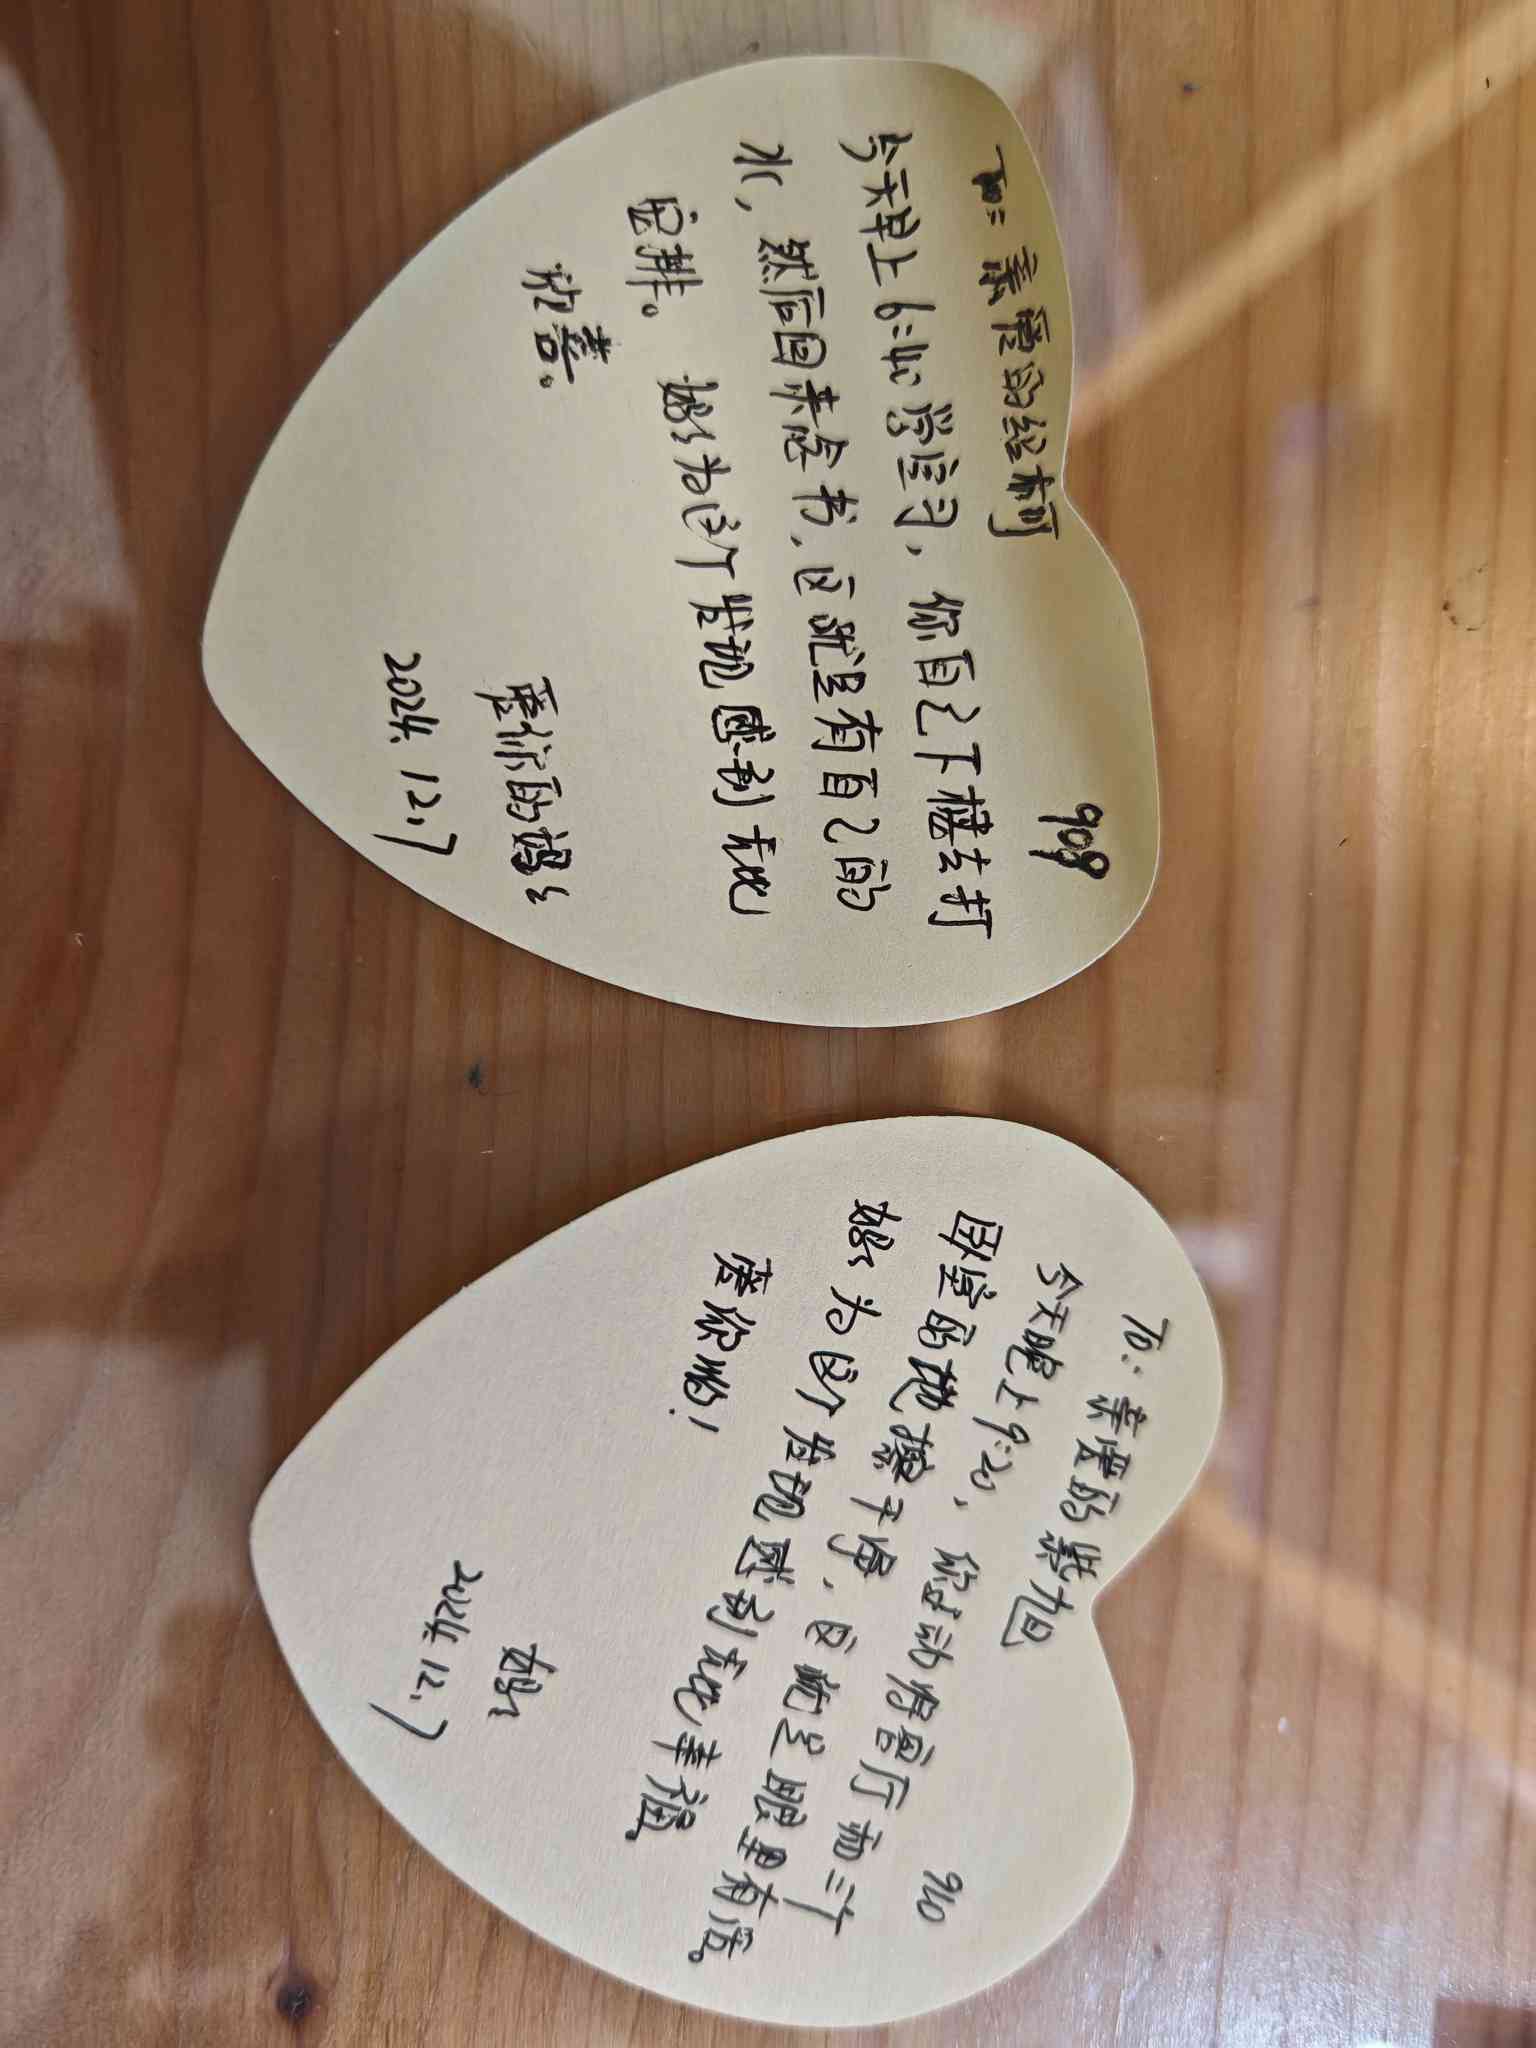 908
To: 亲爱的
今天早上6:40学完习，你自己下楼去打
水，然后回来念书，这就是有自己的
安排。妈妈为这个发现感到无比
欣喜。
爱你的妈妈
2024.12.7
910
To: 亲爱的紫旭
今天晚上9:20，你主动将客厅和三个
卧室的地擦干净，这就是眼里有活。
妈妈为这个发现感到无比幸福。
爱你哟！
妈妈
2024.12.7